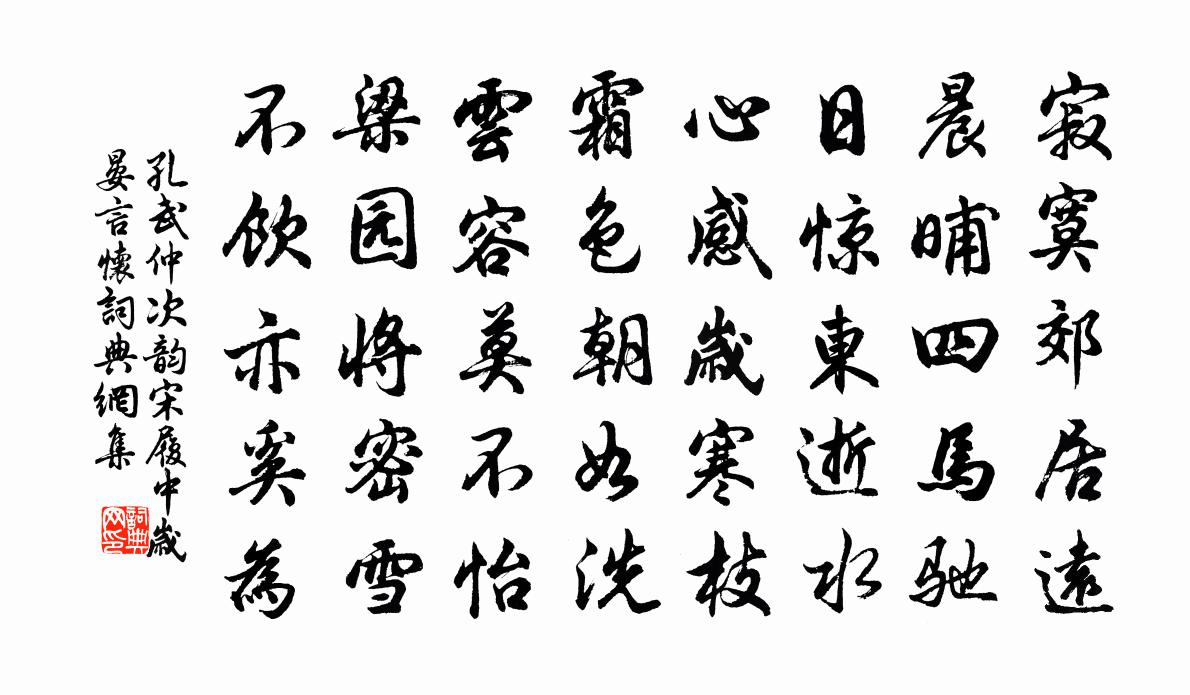 寂寞郊居遠
晨晡四馬馳
日惊東逝水
心感歲寒枝
霜色朝如洗
雲容莫不怡
梁园将密雪
不飲亦奚為
孔武仲次韵宋履中歲
晏言懷詞典網集
詞典网印